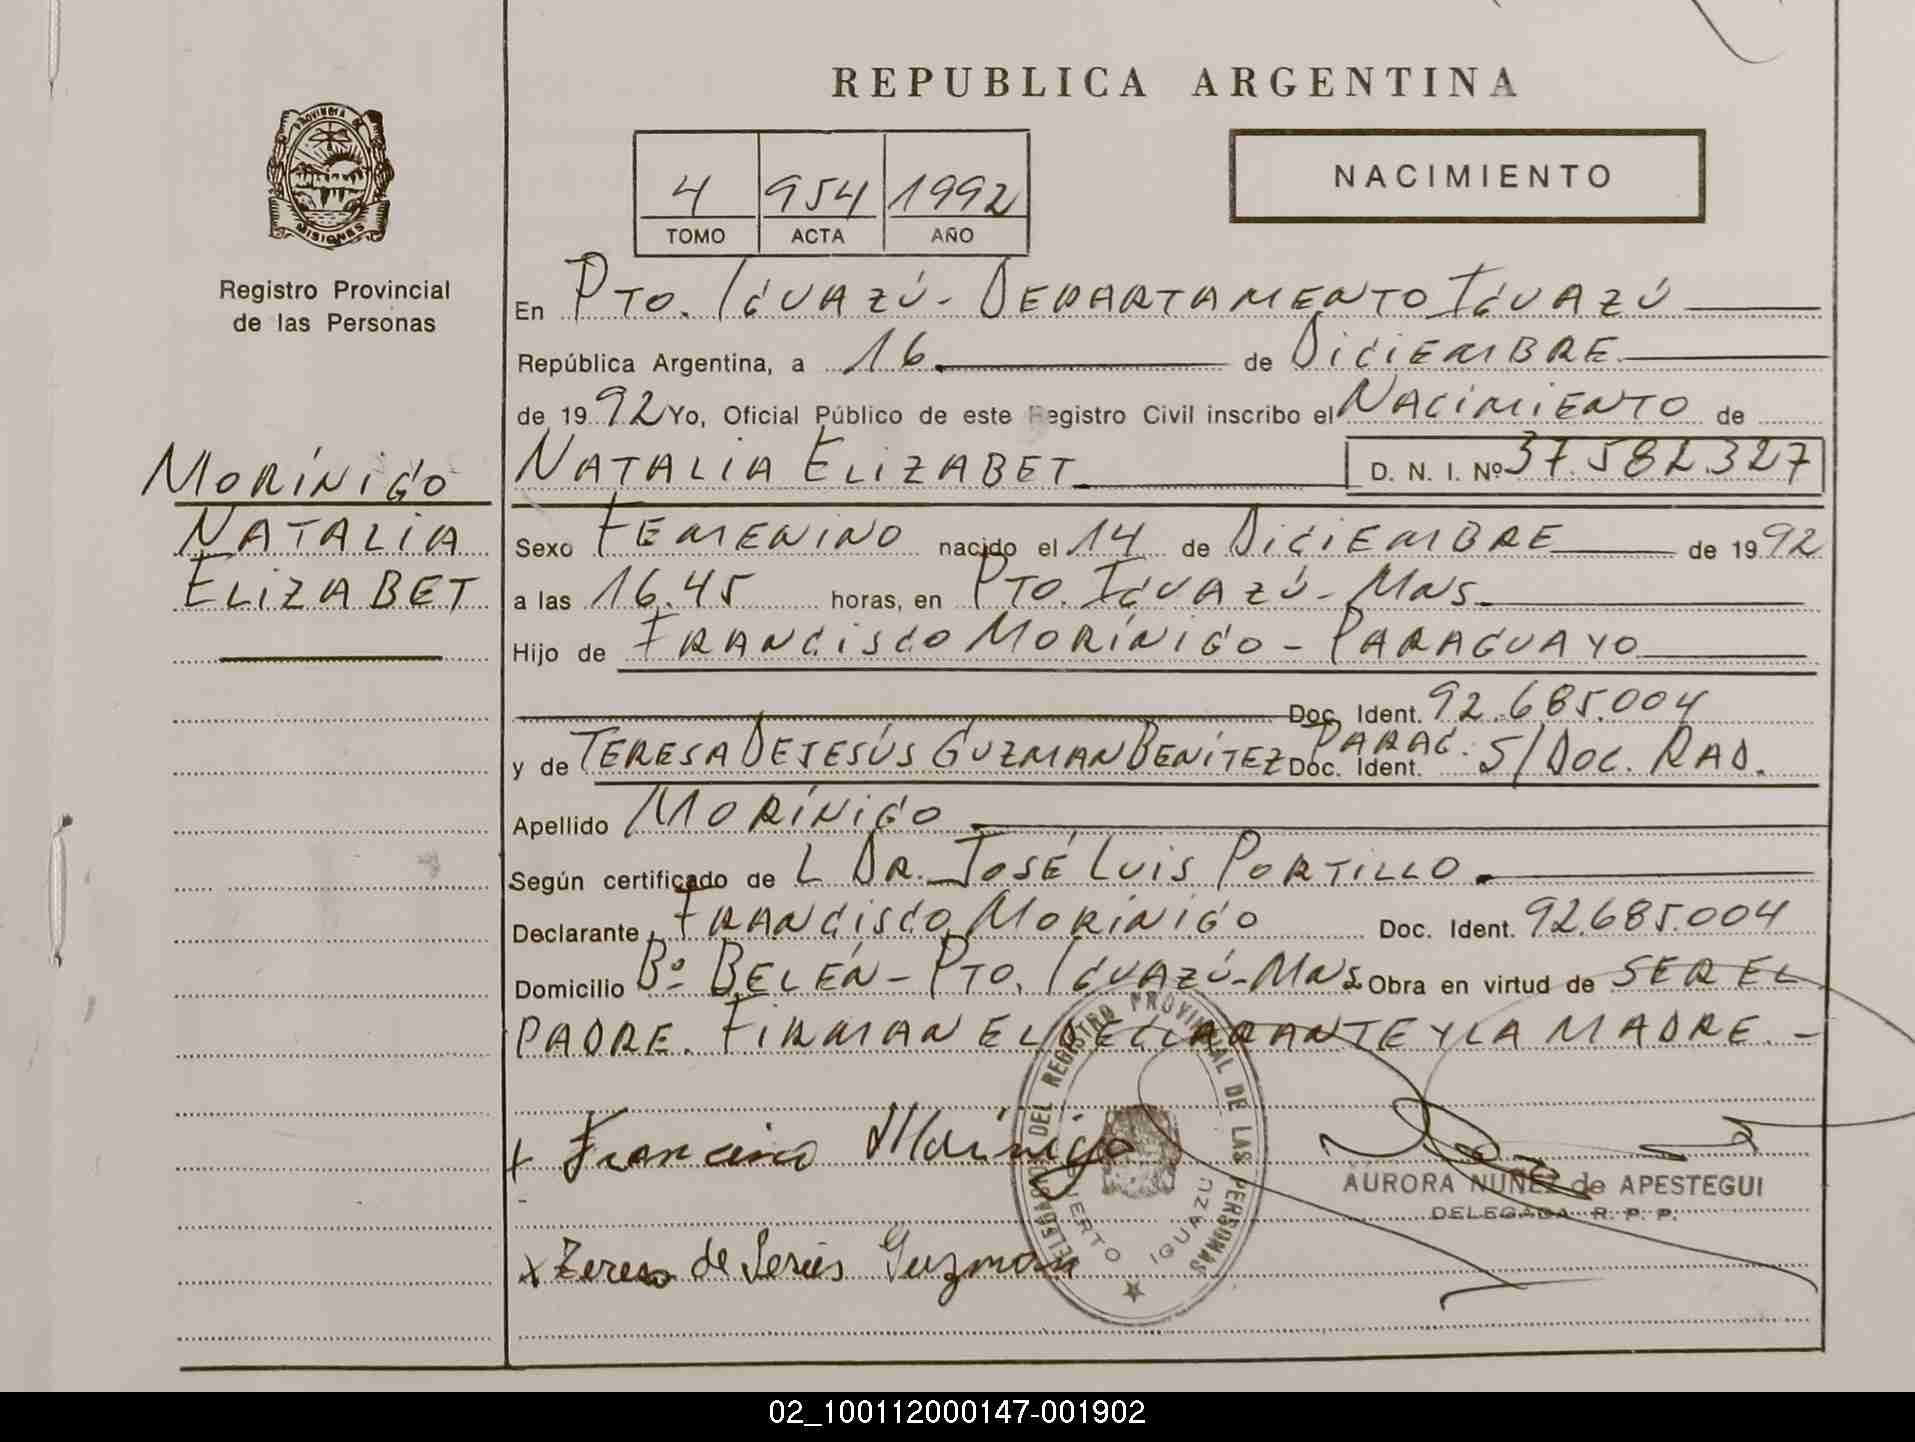 REPUBLICA ARGENTINA
PROVINCIA DE
MISIONES
Registro Provincial
de las Personas
4 954 1992
TOMO ACTA AÑO
NACIMIENTO
En PTO. IGUAZÚ - DEPARTAMENTO IGUAZÚ
República Argentina, a 16 de DICIEMBRE
de 1992 Yo, Oficial Público de este Registro Civil inscribo el NACIMIENTO de
NATALIA ELIZABET D. N. I. Nº 37.582.327
MORÍNIGO
NATALIA
ELIZABET
Sexo FEMENINO nacido el 14 de DICIEMBRE de 1992
a las 16.45 horas, en PTO. IGUAZÚ - MNS.
Hijo de FRANCISCO MORÍNIGO - PARAGUAYO
Doc. Ident. 92.685.004
y de TERESA DE JESÚS GUZMAN BENÍTEZ PARAG. Doc. Ident. S/DOC. RAD.
Apellido MORÍNIGO
Según certificado de L DR. JOSÉ LUIS PORTILLO.
Declarante FRANCISCO MORÍNIGO Doc. Ident. 92.685.004
Domicilio Bº BELÉN - PTO. IGUAZÚ - MNS Obra en virtud de SER EL
PADRE. FIRMAN EL DECLARANTE Y LA MADRE. -
x Francisco Morínigo
x Teresa de Jesús Guzman
DELEGACION DEL REGISTRO PROVINCIAL DE LAS PERSONAS
PUERTO IGUAZU
AURORA NUÑEZ de APESTEGUI
DELEGADA R. P. P.
02_100112000147-001902